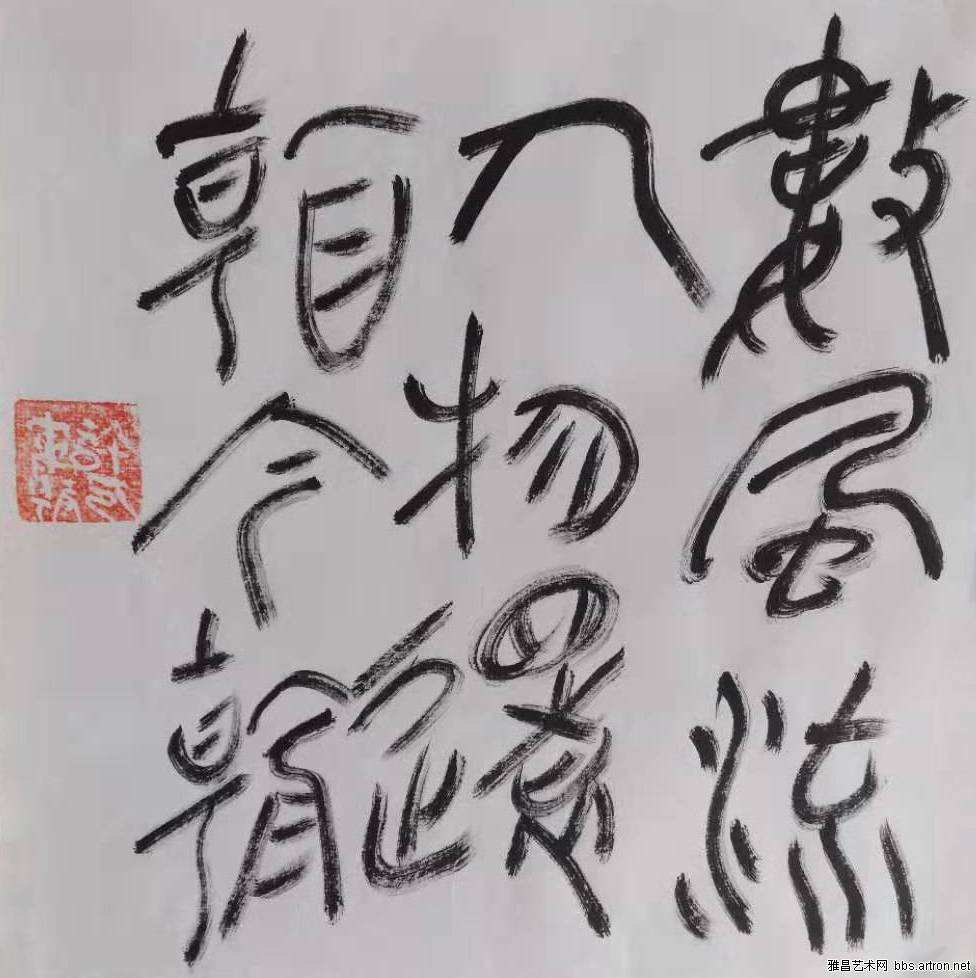 數風流
人物還
看今朝
雅昌艺术网 bbs.artron.net